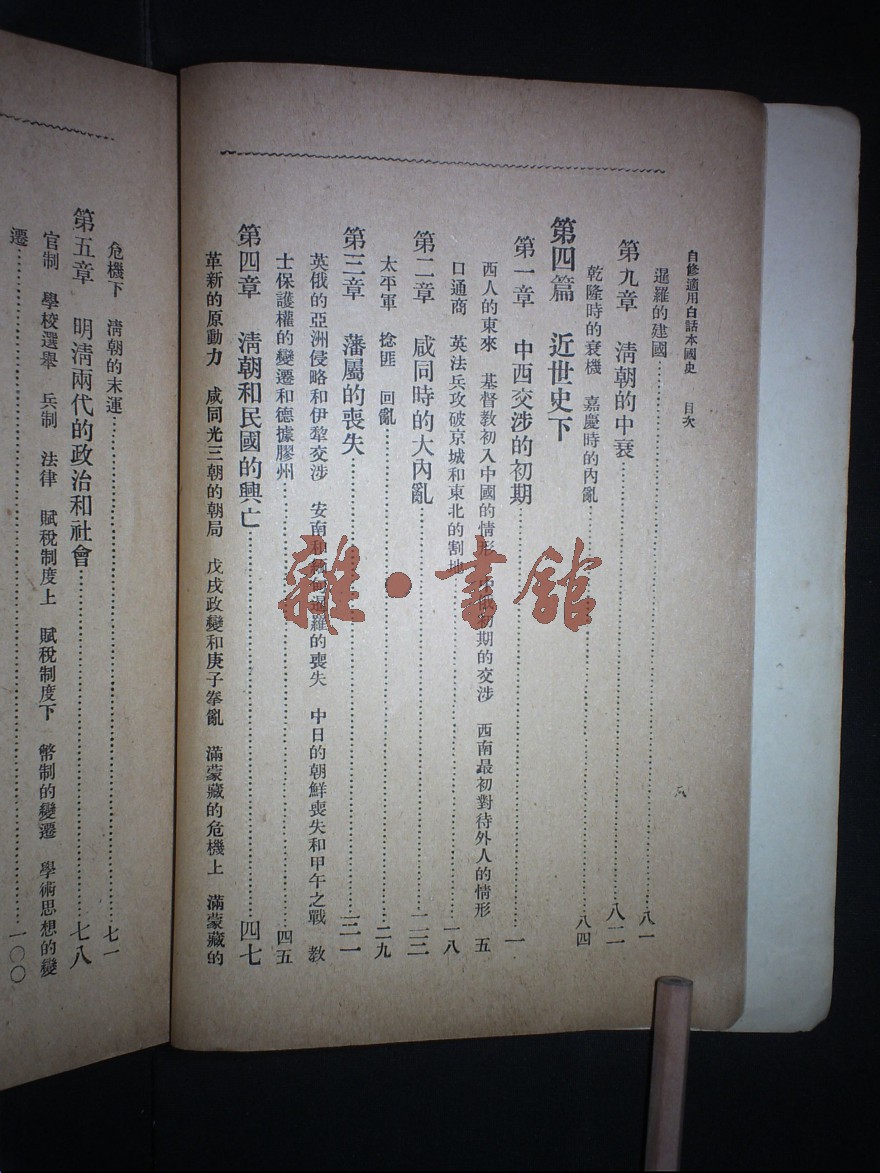 自修適用白話本國史 目次
暹羅的建國……八一
第九章 清朝的中衰……八二
乾隆時的衰機 嘉慶時的內亂……八四
第四篇 近世史下
第一章 中西交涉的初期……一
西人的東來 基督教初入中國的情形 初期的交涉 西南最初對待外人的情形 五
口通商 英法兵攻破京城和東北的割地……一八
第二章 咸同時的大內亂……二三
太平軍 捻匪 回亂……二九
第三章 藩屬的喪失……三一
英俄的亞洲侵略和伊犂交涉 安南和緬甸暹羅的喪失 中日的朝鮮喪失和甲午之戰 教
士保護權的變遷和德據膠州……四五
第四章 清朝和民國的興亡……四七
革新的原動力 咸同光三朝的朝局 戊戌政變和庚子拳亂 滿蒙藏的危機上 滿蒙藏的
危機下 清朝的末運……七一
第五章 明清兩代的政治和社會……七八
官制 學校選舉 兵制 法律 賦稅制度上 賦稅制度下 幣制的變遷 學術思想的變
遷……一〇〇
雜·書館